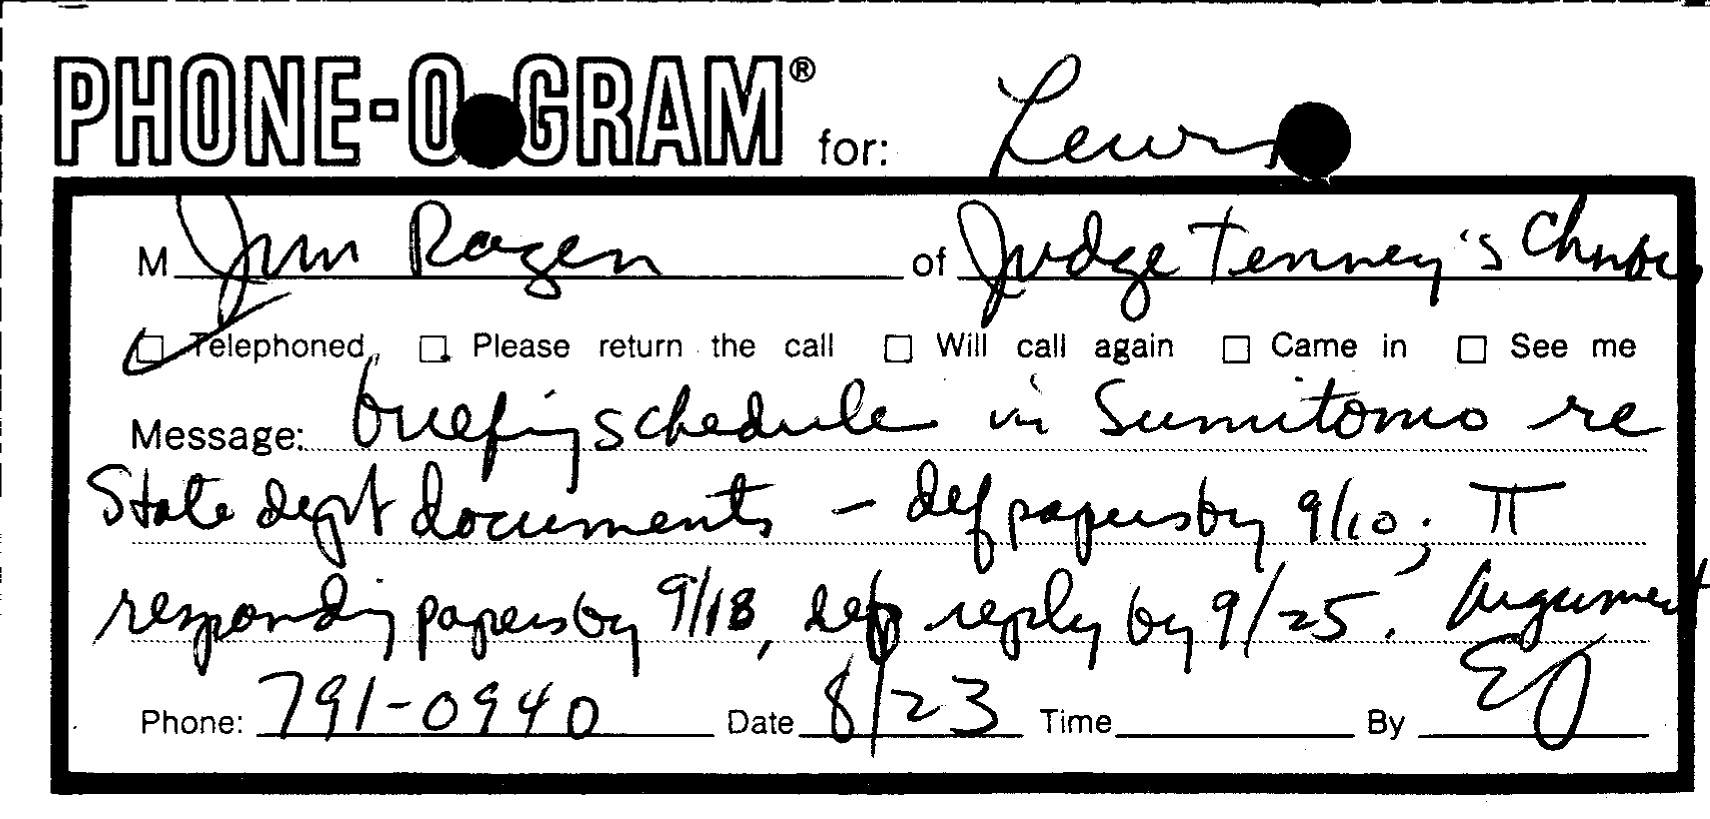 PHONE-O-GRAM® for: Lewis
M Jim Ragen of Judge Tenney's Chmbrs
Telephoned Please return the call Will call again Came in See me
Message: briefing schedule in Sumitomo re
State dept documents – def papers by 9/10; π
responding papers by 9/18, def reply by 9/25. Argument
Phone: 791-0940 Date 8/23 Time By EJ